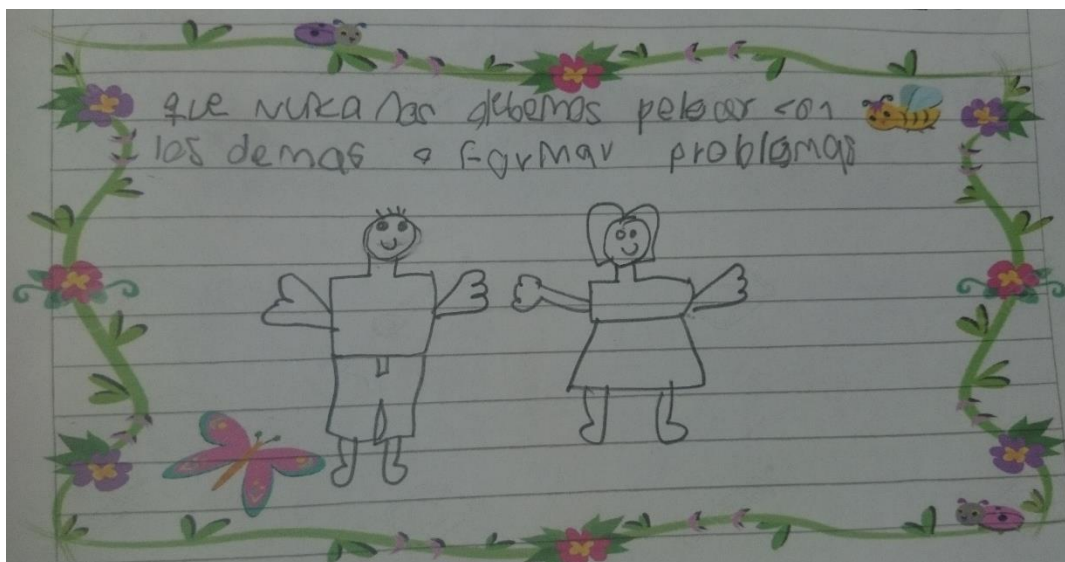 que nunca nos debemos pelear con
los demas o formar problemas